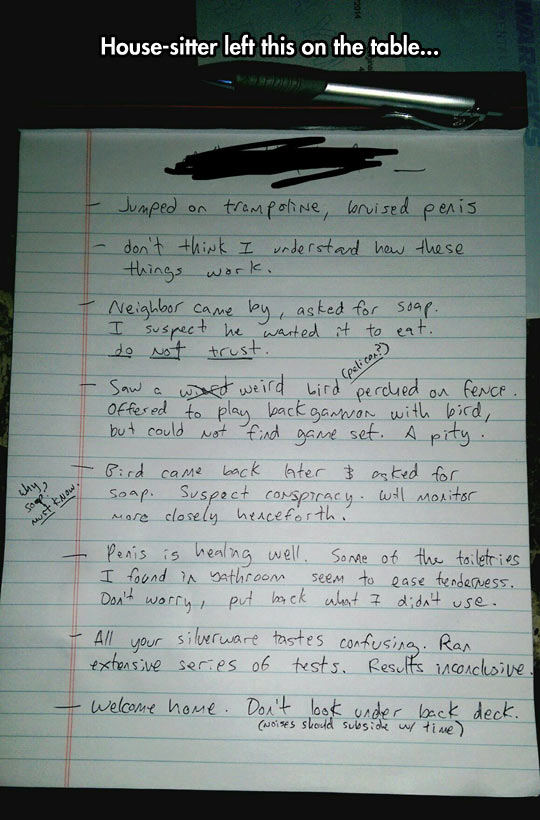 House-sitter left this on the table...
- Jumped on trampoline, bruised penis
- don't think I understand how these
things work.
- Neighbor came by, asked for soap.
I suspect he wanted it to eat.
do not trust.
(pelican?)
- Saw a weird bird perched on fence.
Offered to play backgammon with bird,
but could not find game set. A pity.
- Bird came back later & asked for
soap. Suspect conspiracy. Will monitor
more closely henceforth.
why soap?
must know.
- Penis is healing well. Some of the toiletries
I found in bathroom seem to ease tenderness.
Don't worry, put back what I didn't use.
- All your silverware tastes confusing. Ran
extensive series of tests. Results inconclusive.
- Welcome home. Don't look under back deck.
(noises should subside w/ time)